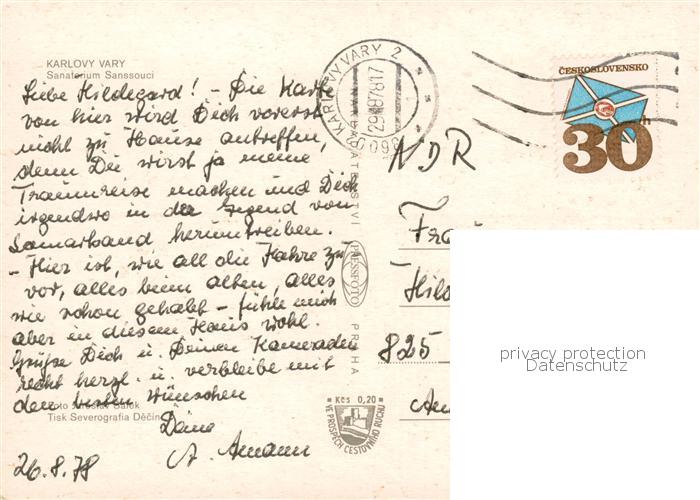 KARLOVY VARY
Sanatorium Sanssouci
Liebe Hildegard! - Die Karte
von hier wird Dich vorerst
nicht zu Hause antreffen,
denn Du wirst ja meine
Traumreise machen und Dich
irgendwo in der Gegend von
Samarkand herumtreiben.
- Hier ist, wie all die Jahre zu-
vor, alles beim alten, alles
wie schon gehabt - fühle mich
aber in diesem Haus wohl.
Grüße Dich u. Deinen Kameraden
recht herzl. u. verbleibe mit
den besten Wünschen
Foto Jaroslav
Tisk Severografia Děčín
A. Amann
26.8.78
KARLOVY VARY 2
29.8.78-17
NAKLADATELSTVÍ
PRESSFOTO
PRAHA
Kčs 0,20
VE PROSPĚCH CESTOVNÍHO RUCHU
ČESKOSLOVENSKO
30h
NDR
Hild
825
Am
privacy protection
Datenschutz